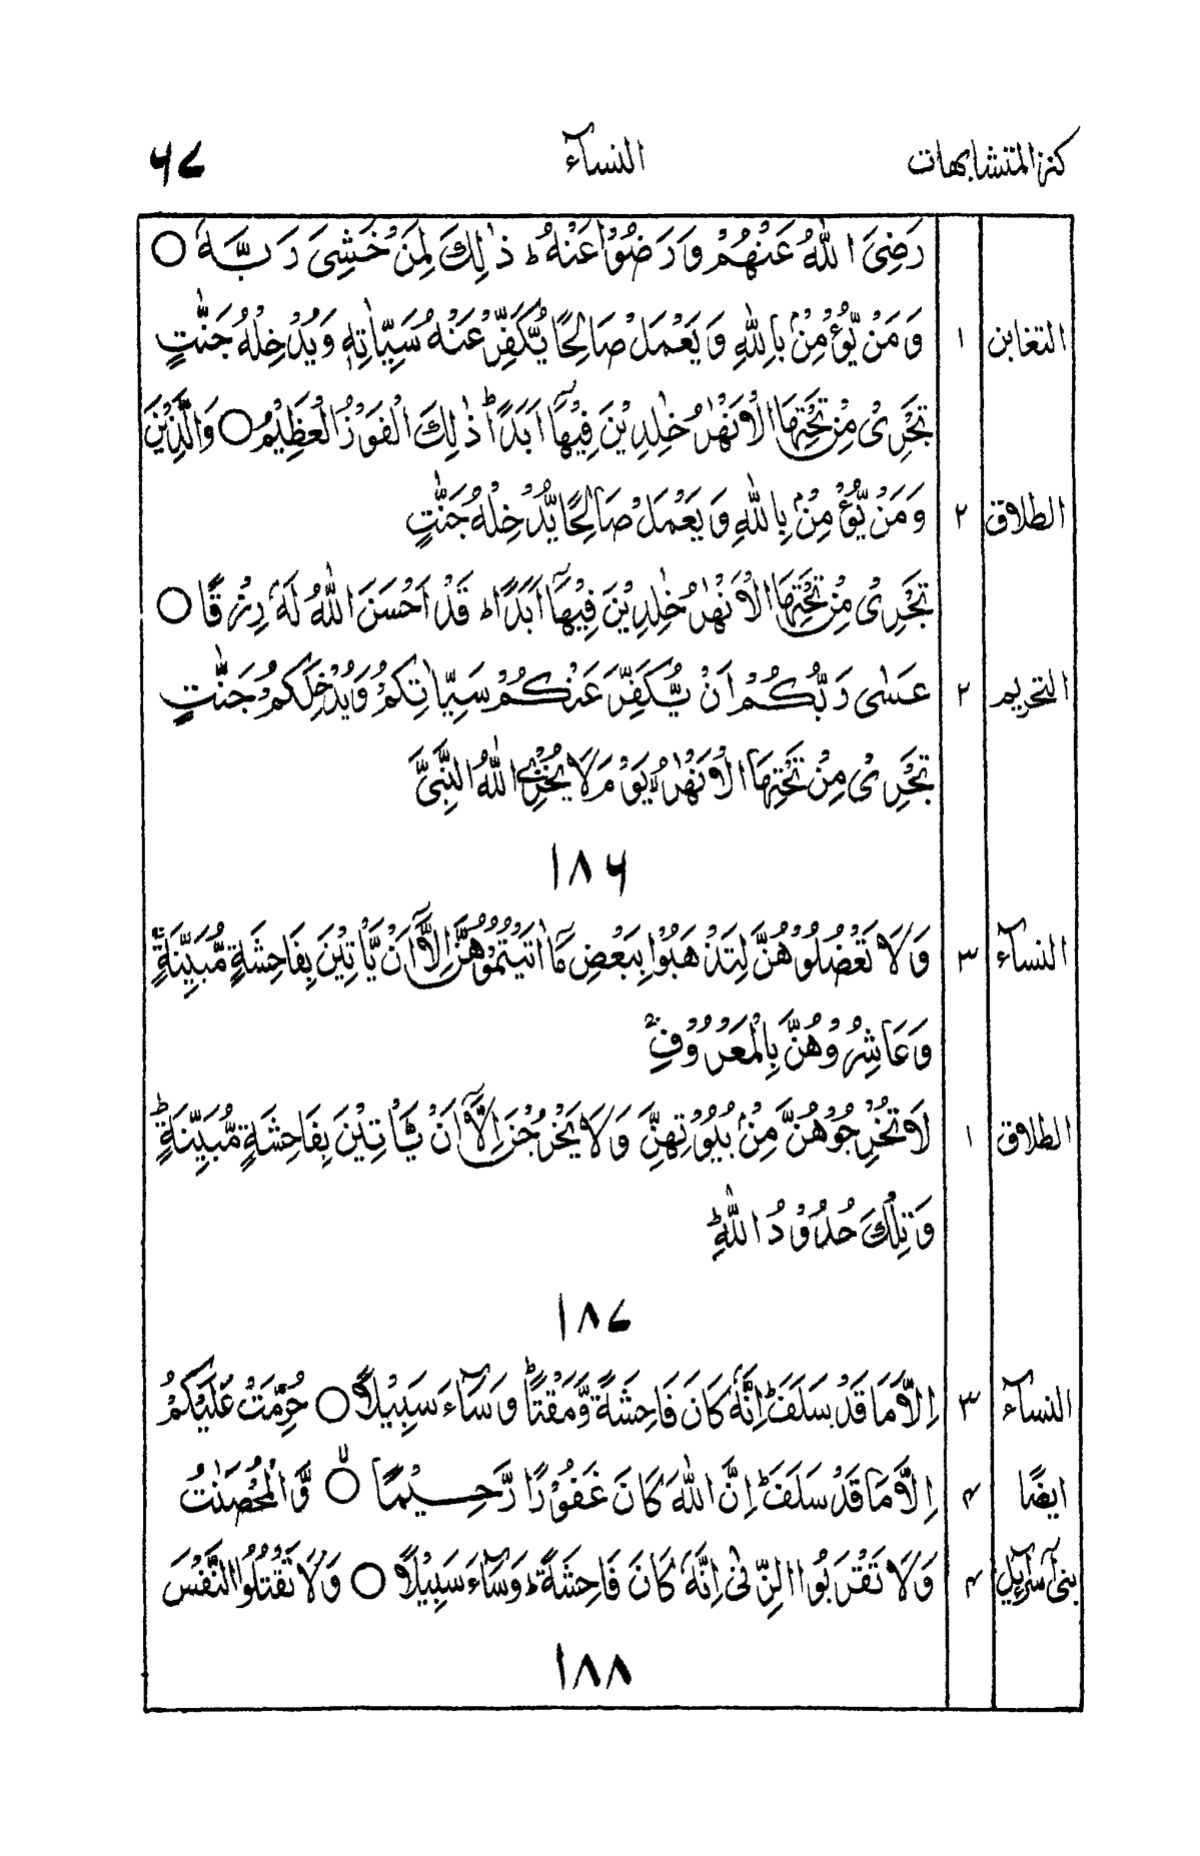 كنز المتشابهات النسآء ٦٧
رَضِيَ اللّٰهُ عَنْهُمْ وَرَضُوْا عَنْهُ ؕ ذٰلِكَ لِمَنْ خَشِيَ رَبَّهٗ ○
التغابن ١ وَمَنْ يُّؤْمِنْۢ بِاللّٰهِ وَيَعْمَلْ صَالِحًا يُّكَفِّرْ عَنْهُ سَيِّاٰتِهٖ وَيُدْخِلْهُ جَنّٰتٍ
تَجْرِيْ مِنْ تَحْتِهَا الْاَنْهٰرُ خٰلِدِيْنَ فِيْهَآ اَبَدًا ؕ ذٰلِكَ الْفَوْزُ الْعَظِيْمُ ○ وَالَّذِيْنَ
الطلاق ٢ وَمَنْ يُّؤْمِنْۢ بِاللّٰهِ وَيَعْمَلْ صَالِحًا يُّدْخِلْهُ جَنّٰتٍ
تَجْرِيْ مِنْ تَحْتِهَا الْاَنْهٰرُ خٰلِدِيْنَ فِيْهَآ اَبَدًا ؕ قَدْ اَحْسَنَ اللّٰهُ لَهٗ رِزْقًا ○
التحريم ٢ عَسٰى رَبُّكُمْ اَنْ يُّكَفِّرَ عَنْكُمْ سَيِّاٰتِكُمْ وَيُدْخِلَكُمْ جَنّٰتٍ
تَجْرِيْ مِنْ تَحْتِهَا الْاَنْهٰرُ ۙ يَوْمَ لَا يُخْزِى اللّٰهُ النَّبِيَّ
١٨٦
النسآء ٣ وَلَا تَعْضُلُوْهُنَّ لِتَذْهَبُوْا بِبَعْضِ مَآ اٰتَيْتُمُوْهُنَّ اِلَّآ اَنْ يَّاْتِيْنَ بِفَاحِشَةٍ مُّبَيِّنَةٍ ۚ
وَعَاشِرُوْهُنَّ بِالْمَعْرُوْفِ ۚ
الطلاق ١ لَا تُخْرِجُوْهُنَّ مِنْۢ بُيُوْتِهِنَّ وَلَا يَخْرُجْنَ اِلَّآ اَنْ يَّاْتِيْنَ بِفَاحِشَةٍ مُّبَيِّنَةٍ ؕ
وَتِلْكَ حُدُوْدُ اللّٰهِ ؕ
١٨٧
النسآء ٣ اِلَّا مَا قَدْ سَلَفَ ؕ اِنَّهٗ كَانَ فَاحِشَةً وَّمَقْتًا ؕ وَسَآءَ سَبِيْلًا ○ حُرِّمَتْ عَلَيْكُمْ
ايضًا ٤ اِلَّا مَا قَدْ سَلَفَ ؕ اِنَّ اللّٰهَ كَانَ غَفُوْرًا رَّحِيْمًا ○ۙ وَّالْمُحْصَنٰتُ
بنى اسرآئيل ٤ وَلَا تَقْرَبُوا الزِّنٰى اِنَّهٗ كَانَ فَاحِشَةً ؕ وَسَآءَ سَبِيْلًا ○ وَلَا تَقْتُلُوا النَّفْسَ
١٨٨